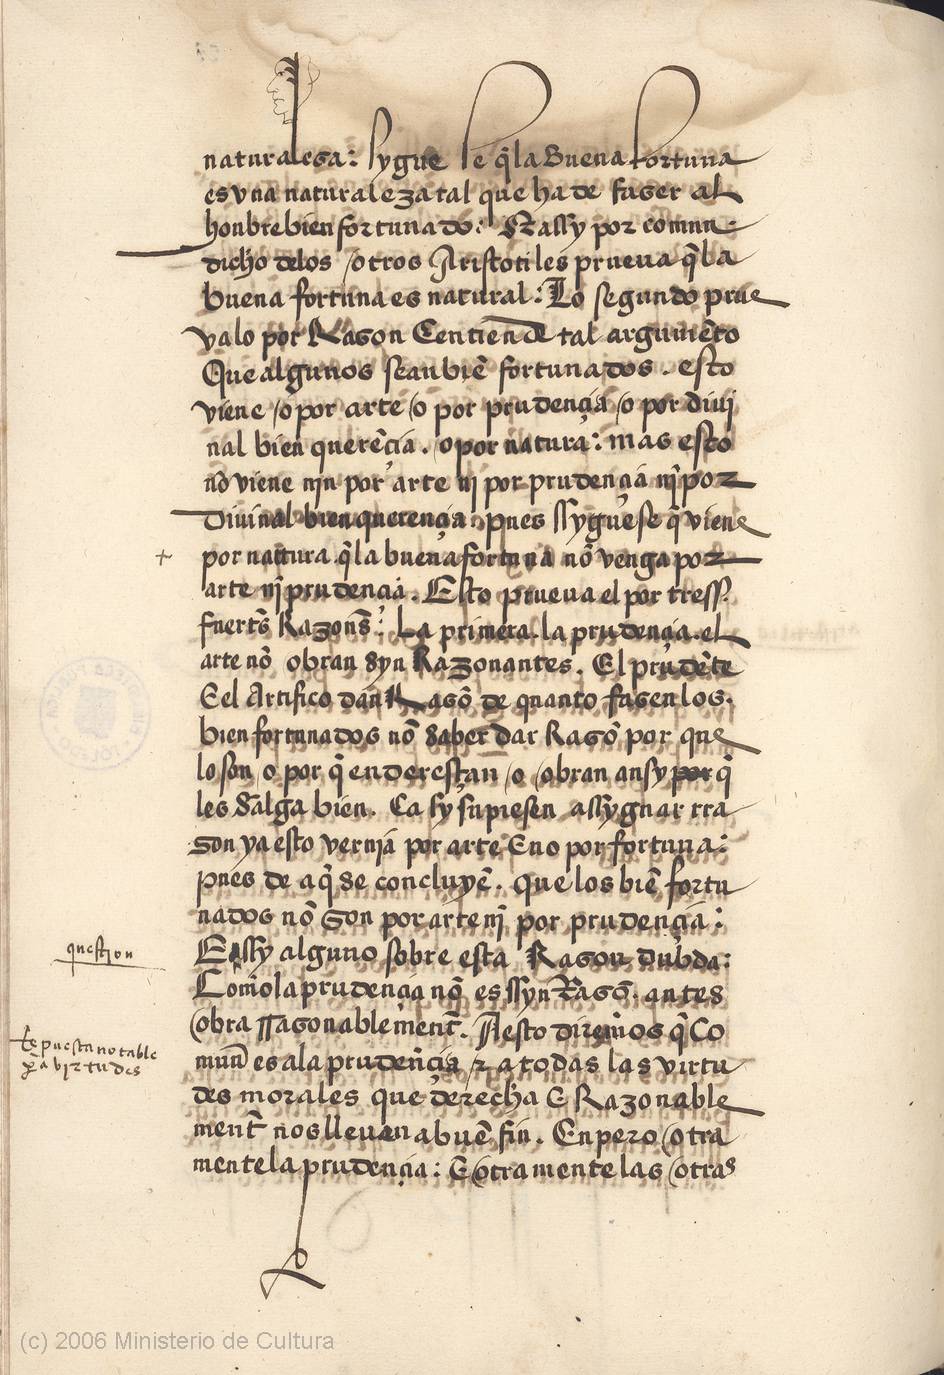 naturalesa: sygue se q̃ la buena fortuna
es vna naturaleza tal que ha de faser al
honbre bien fortunado: E assy por comun
dicho de los otros Aristotiles prueua q̃ la
buena fortuna es natural: Lo segundo prue
valo por Rason E entiende tal argumẽto
Que algunos sean biẽ fortunados. esto
viene o por arte o por prudençia o por diui
nal bien querẽcia. o por natura: mas esto
nõ viene nin por arte nj por prudençia nj̃ por
diuinal bien querençia: pues ssyguese q̃ viene
por natura q̃ la buena fortuna nõ venga por
arte nj̃ prudençia. Esto prueua el por tress
fuert̃s Razoñs: La primera. la prudençia. el
arte nõ obran syn Razonantes. El prudẽte
E el Artifico dan Rasõ de quanto fasen los.
bien fortunados nõ saber dar Rasõ por que
lo son o por q̃ enderesçan o obran ansy por q̃
les salga bien. Ca sy supiesen assygnar rra
son ya esto vernja por arte E no por fortuna:
pues de aq̃ se concluyẽ. que los biẽ fortu
nados nõ son por arte nj̃ por prudençia:
E assy alguno sobre esta Rason dubda:
Como la prudençia nõ es ssyn Rasõ. antes
obra rrasonablement̃. A esto diremos q̃ Co
mun̄ es a la prudençia z a todas las virtu
des morales que derecha E Razonable
ment̃ nos lleuan a buẽ fin. Enpero otra
mente la prudençia: E otra mente las otras
question
Repuesta notable
p̃a birtudes
(c) 2006 Ministerio de Cultura